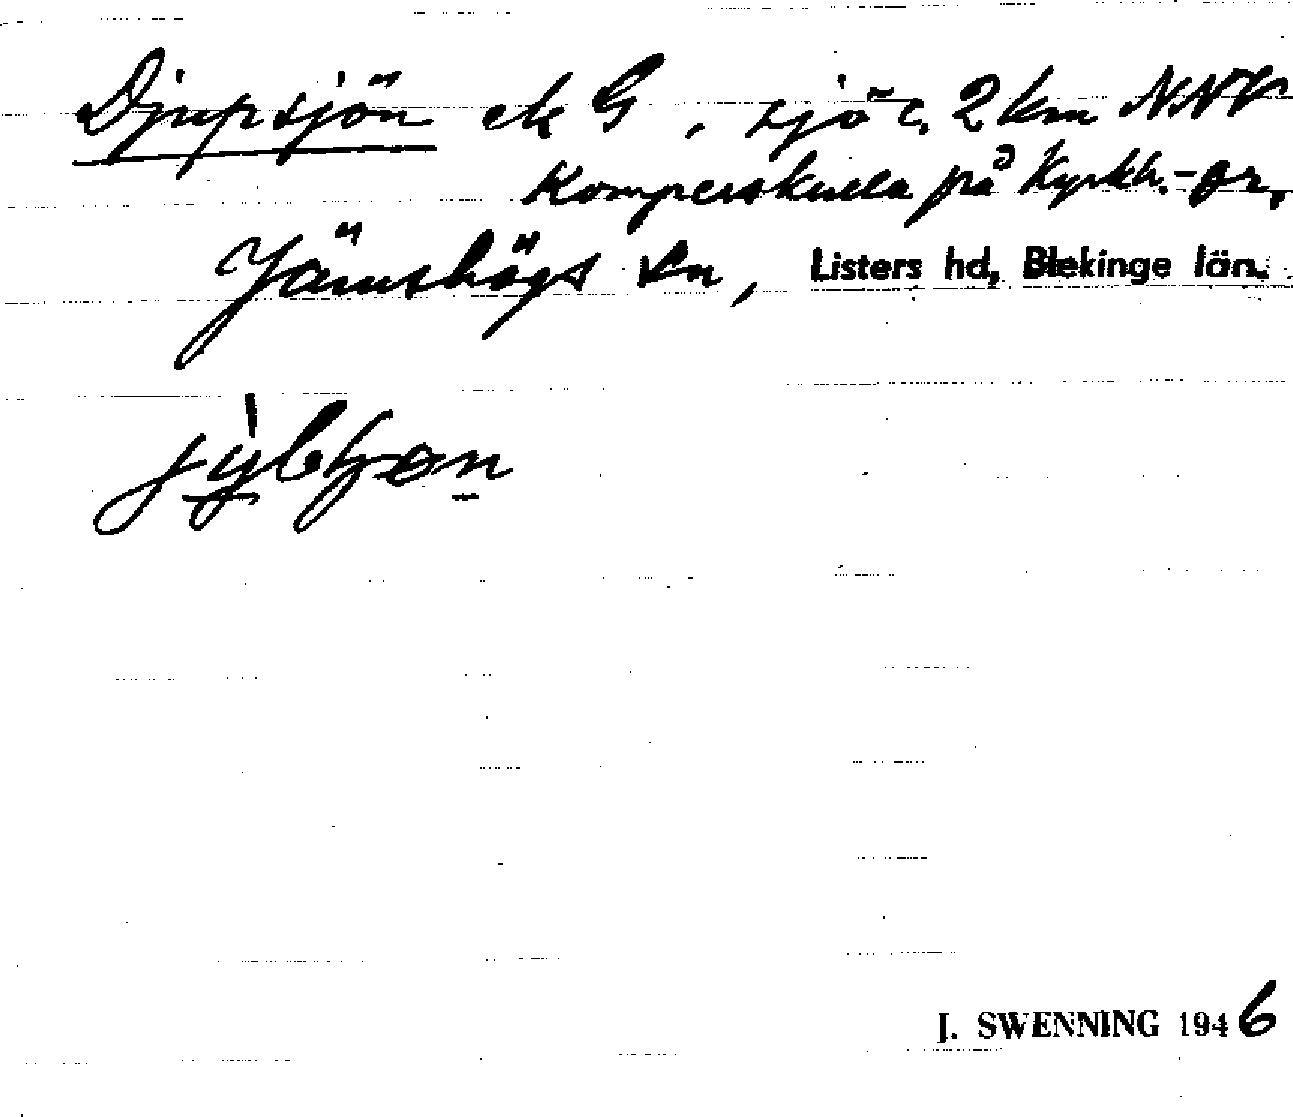 Djupsjön ek G, sjö c. 2 km NNV
Komperskulla på Kyrkh.-gr,
Jämshögs sn, Listers hd, Blekinge län.
J. SWENNING 1946